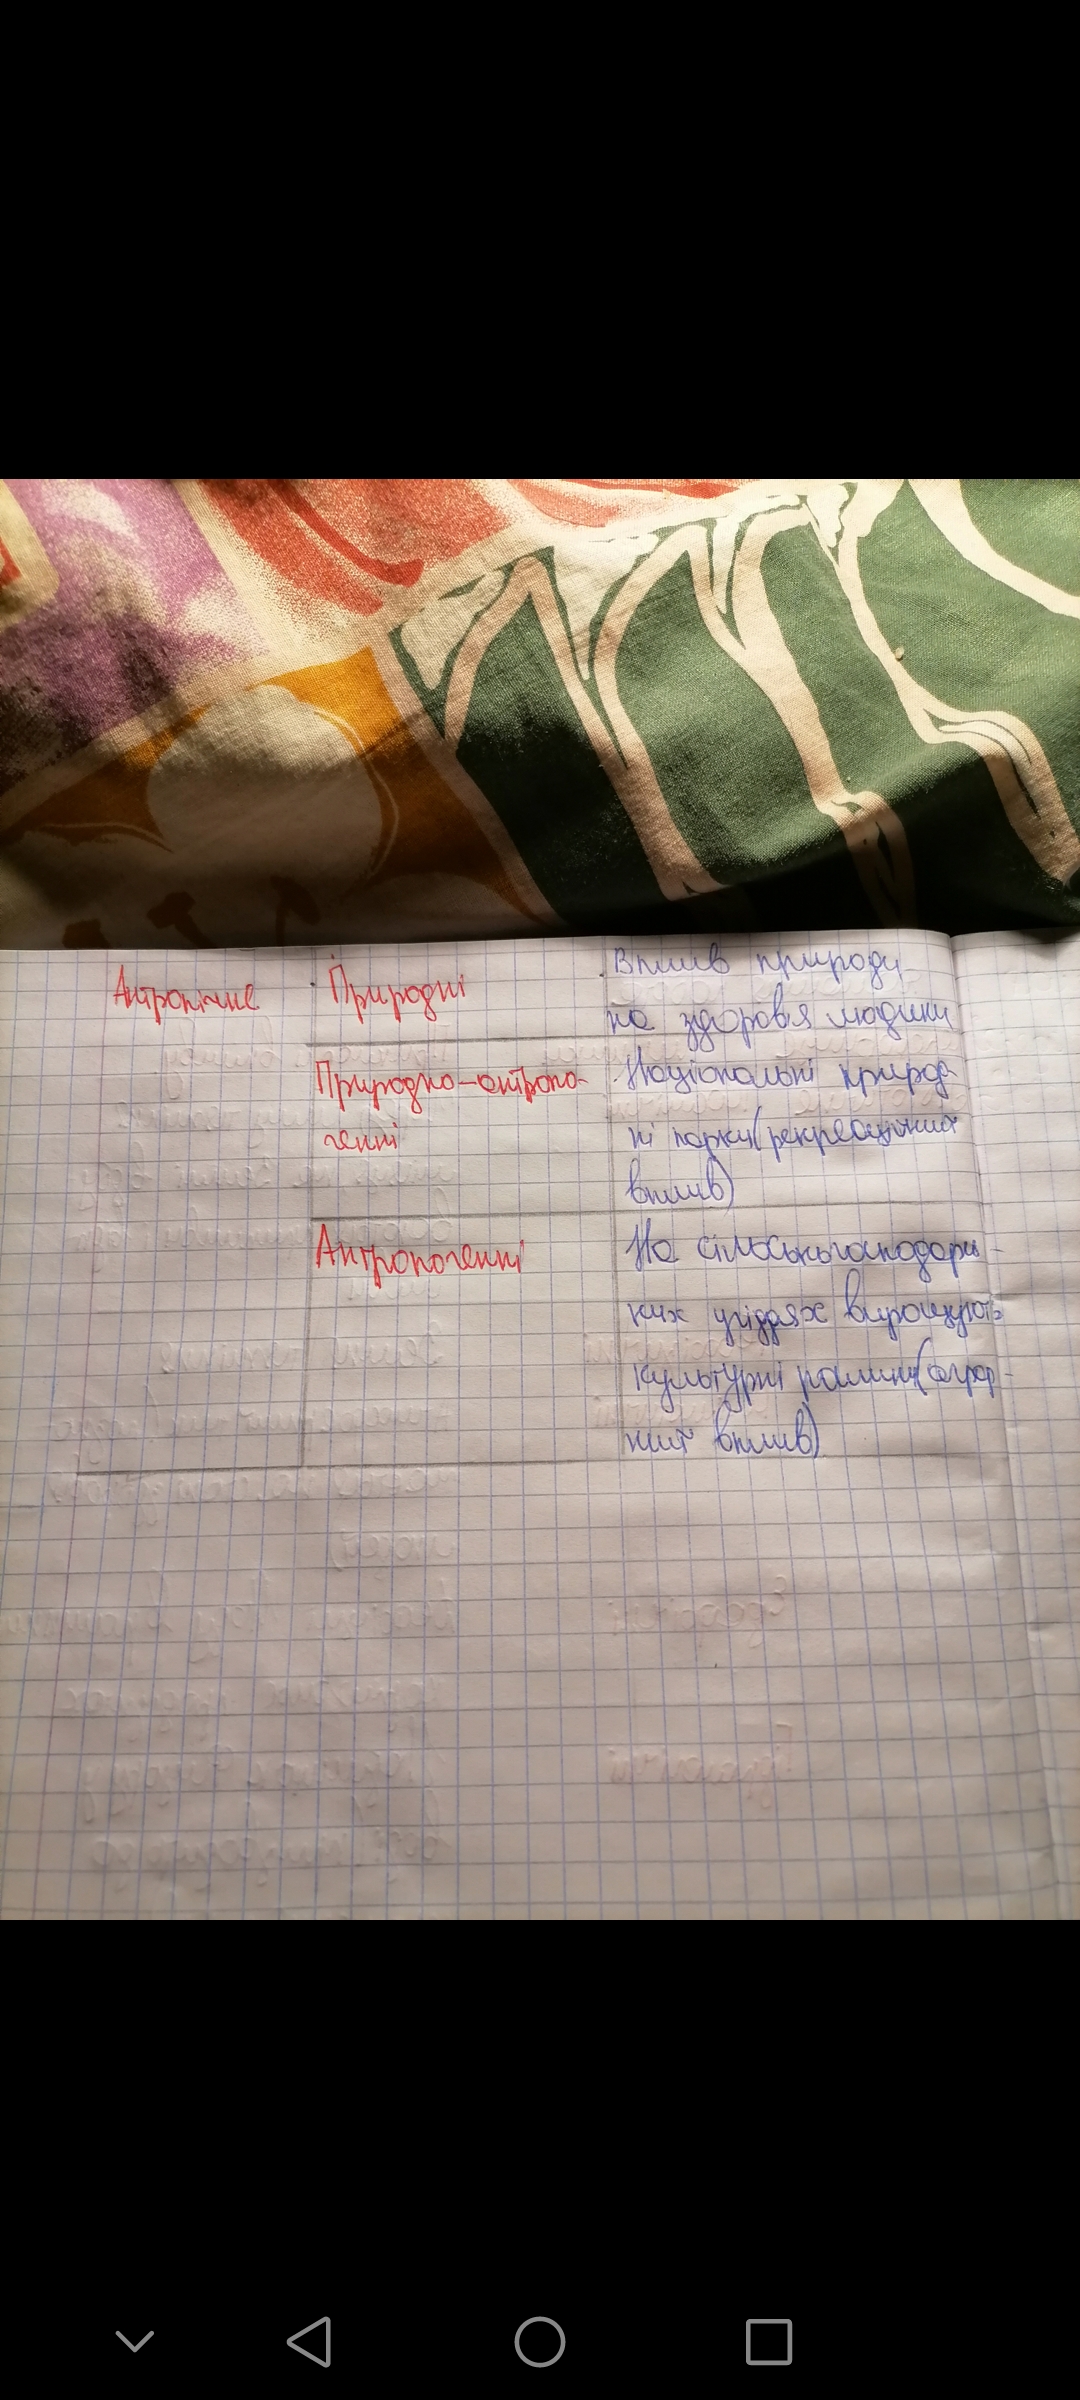 Антропічне
Природні
Вплив природи
на здоров'я людини
Природно-антропо-
генні
Національні природ-
ні парки (рекреаційних
вплив)
Антропогенні
На сільськогосподарсь-
ких угіддях вирощують
культурні рослини (аграр-
ний вплив)